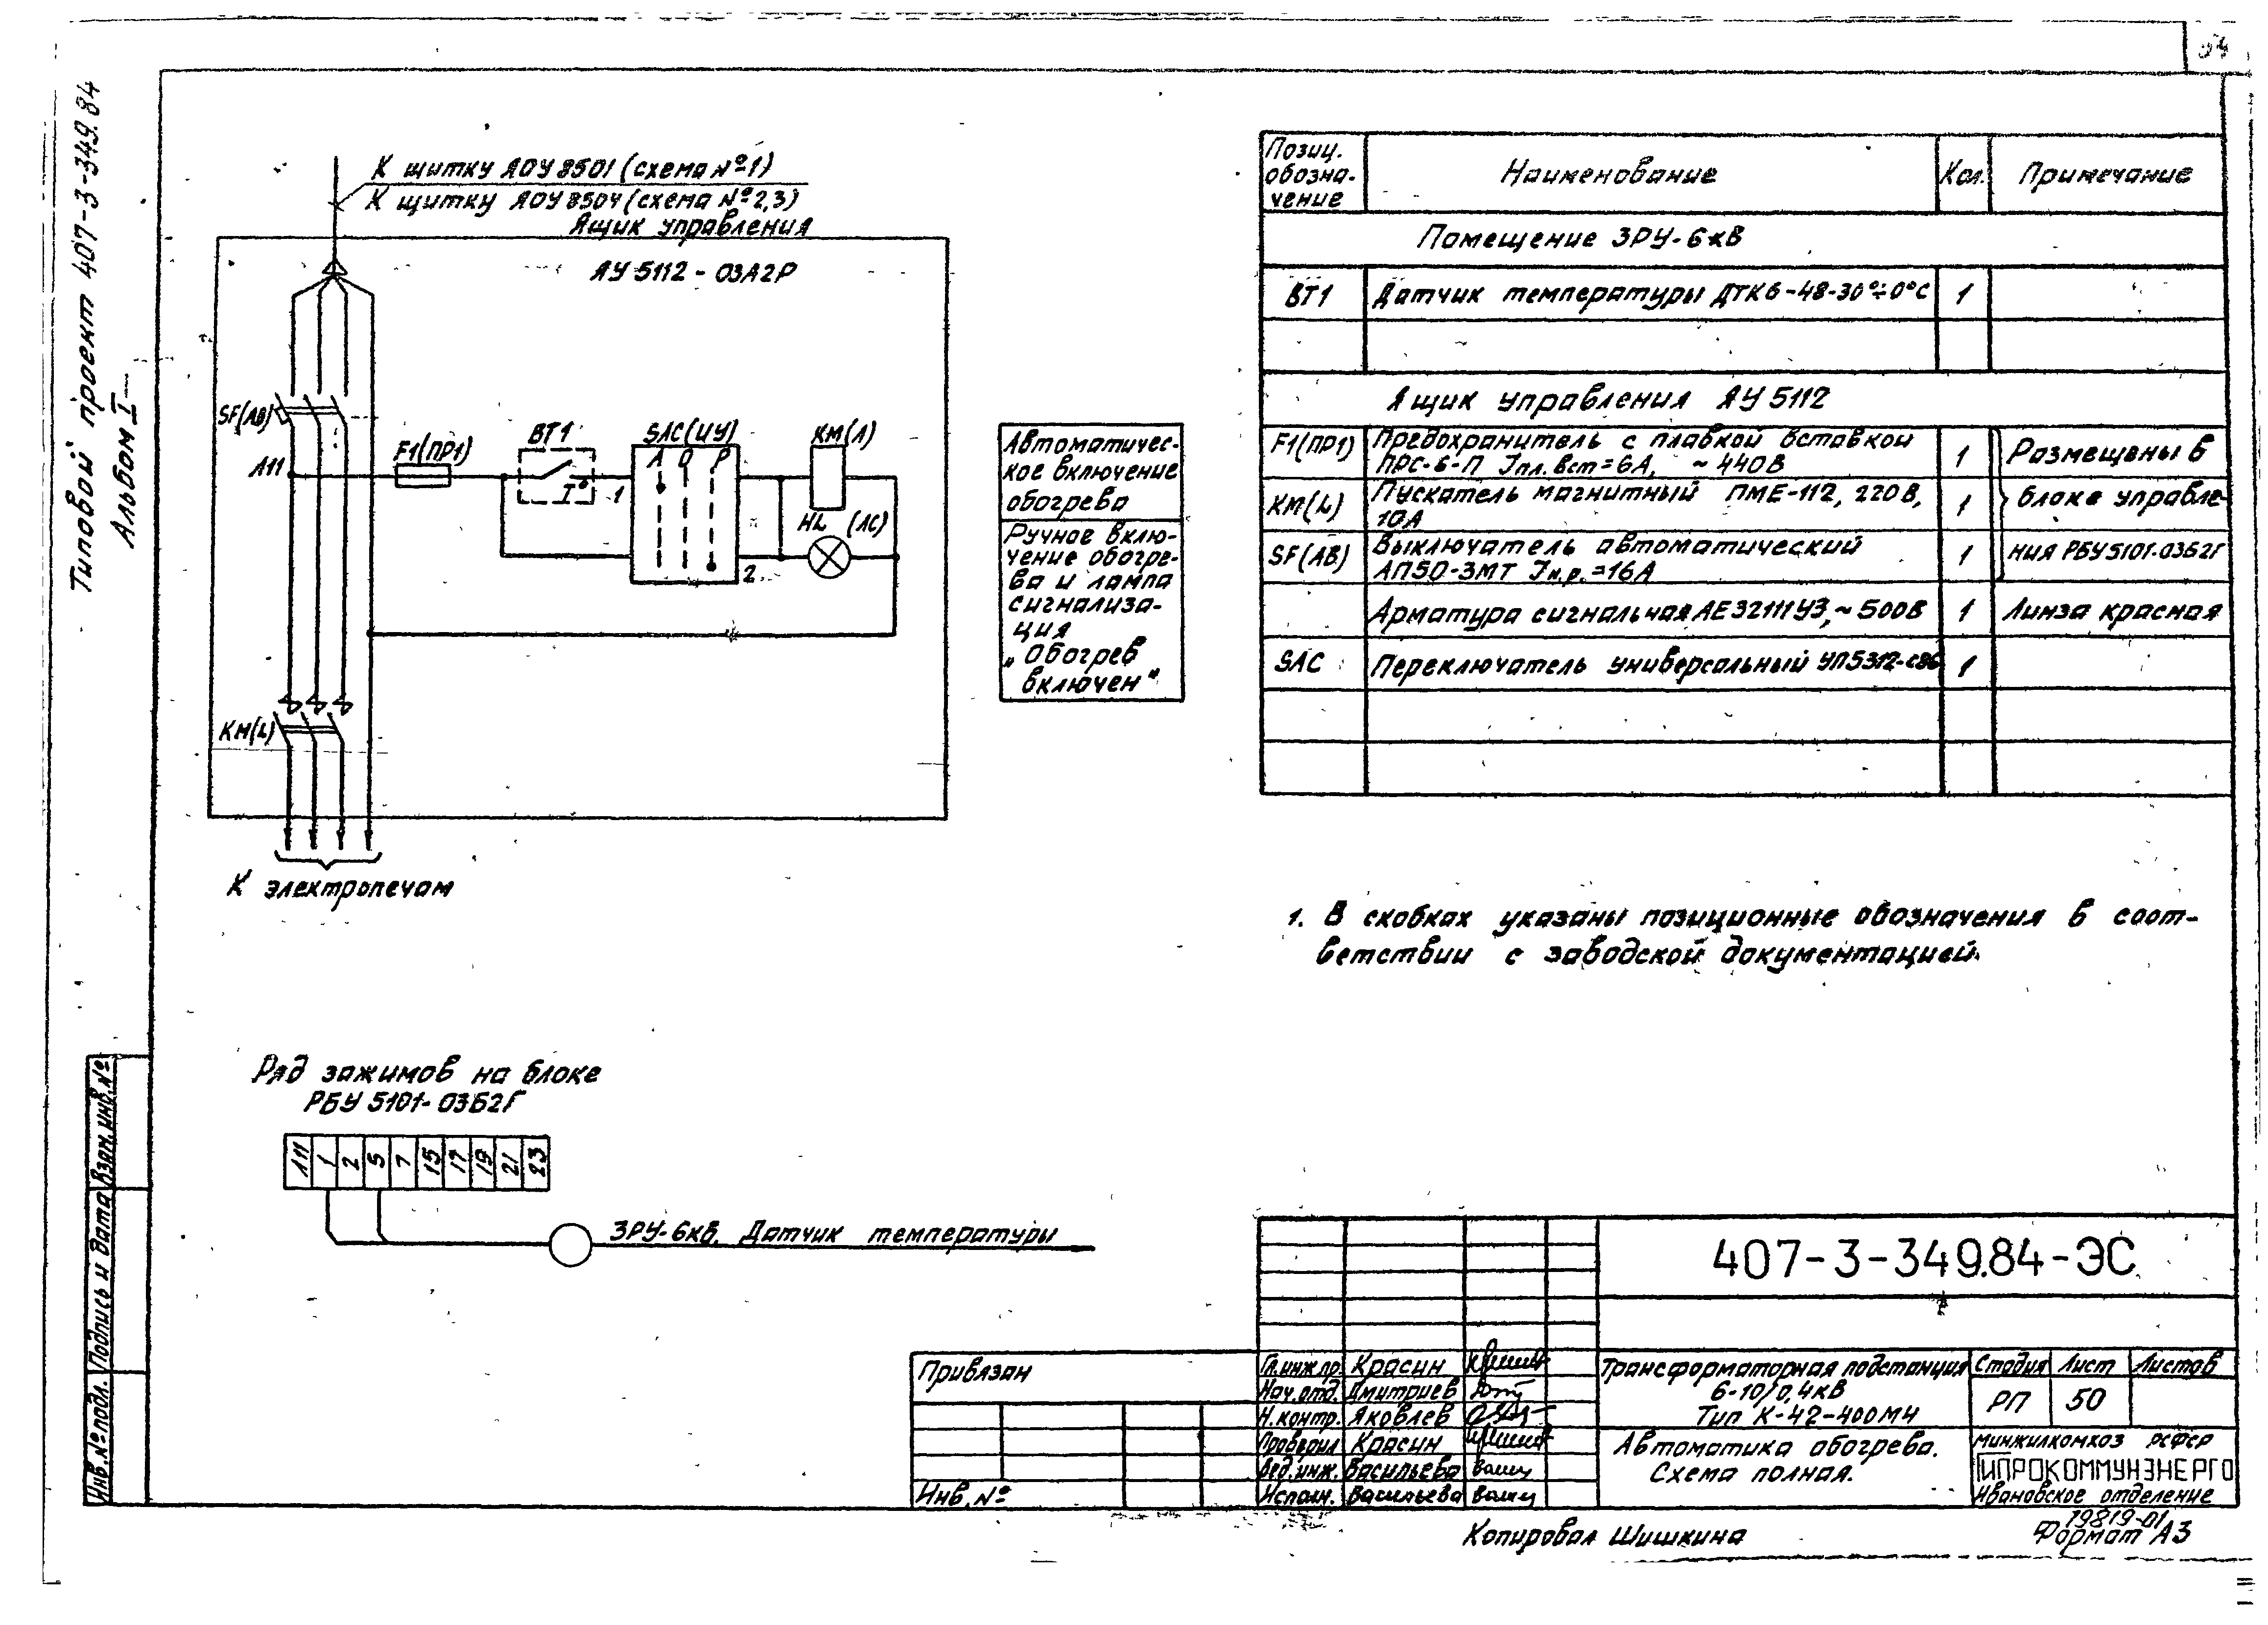 54
Типовой проект 407-3-349.84
Альбом I
К щитку ЯОУ 8501 (схема №1)
К щитку ЯОУ 8504 (схема №2,3)
Ящик управления
ЯУ 5112 - 03А2Р
SF(АВ)
А11
F1(ПР1)
ВТ1
t°
1
SAC(ИУ)
А О Р
2
КМ(Л)
HL (ЛС)
КМ(L)
К электропечам
Автоматичес-
кое включение
обогрева
Ручное вклю-
чение обогре-
ва и лампа
сигнализа-
ция
„Обогрев
включен"
Позиц.
обозна-
чение
Наименование
Кол.
Примечание
Помещение ЗРУ-6кВ
ВТ1 Датчик температуры ДТКБ-48-30°÷0°С 1
Ящик управления ЯУ 5112
F1(ПР1) Предохранитель с плавкой вставкой
ПРС-6-П Iпл.вст=6А, ~440В 1 Размещены в
КМ(L) Пускатель магнитный ПМЕ-112, 220В,
10А 1 блоке управле-
SF(АВ) Выключатель автоматический
АП50-3МТ Iн.р.=16А 1 ния РБУ5101-03Б2Г
Арматура сигнальная АЕ32111У3,~500В 1 Линза красная
SAC Переключатель универсальный УП5312-С86 1
1. В скобках указаны позиционные обозначения в соот-
ветствии с заводской документацией.
Ряд зажимов на блоке
РБУ 5101-03Б2Г
А11 1 2 5 7 15 17 19 21 23
ЗРУ-6кВ. Датчик температуры
Взам.инв.№
Подпись и дата
Инв.№подл.
Привязан
Инв.№
407-3-349.84-ЭС
Гл.инж.пр. Красин
Нач.отд. Дмитриев
Н.контр. Яковлев
Проверил Красин
Вед.инж. Васильева
Исполн. Васильева
Трансформаторная подстанция
6-10/0,4кВ
Тип К-42-400М4
Стадия Лист Листов
РП 50
Автоматика обогрева.
Схема полная.
Минжилкомхоз РСФСР
ГИПРОКОММУНЭНЕРГО
Ивановское отделение
19819-01
Копировал Шишкина
Формат А3